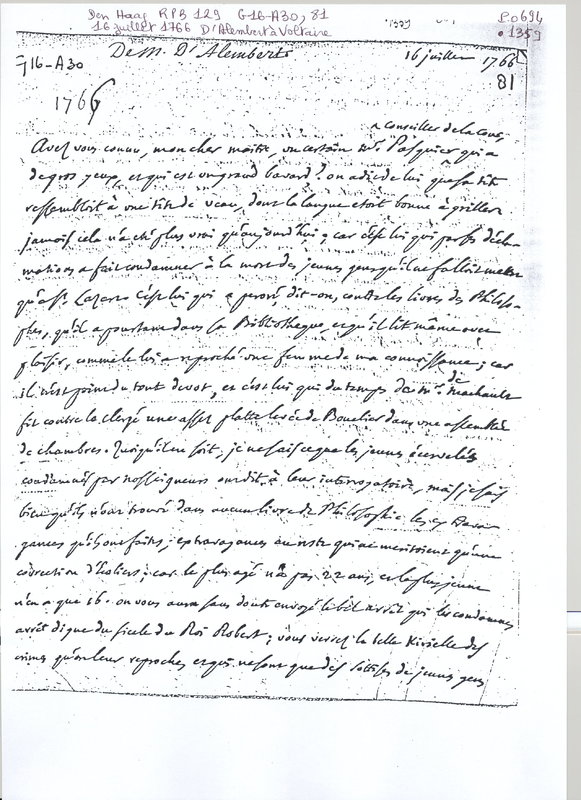 Den Haag RPB 129 G16-A30, 81
16 juillet 1766 D'Alembert à Voltaire
1359
P.0694
1359
G16-A30
De M. D'Alembert
16 juillet 1766
81
1766
conseiller de la Cour,
Avez vous connu, mon cher maitre, un certain Mr. Pasquier qui a
de gros yeux, et qui est un grand bavard? on a dit de lui que sa tête
ressembloit à une tête de veau, dont la langue étoit bonne à griller.
jamais cela n'a été plus vrai qu'aujourd'hui; car c'est lui qui par ses décla
mations a fait condamner à la mort des jeunes gens qu'il ne falloit mettre
qu'à St. Lazare. C'est lui qui a péroré, dit-on, contre les livres des Philoso-
phes, qu'il a pourtant dans sa Bibliotheque, et qu'il lit même avec
plaisir, comme le lui a reproché une femme de ma connoissance; car
il n'est point du tout devot, et c'est lui qui du temps de Mr. de Machault
fit contre le clergé une assez platte levée de Bouclier dans une assemblée
de chambres. Quoiqu'il en soit, je ne sais ce que les jeunes écervelés
condamnés par nosseigneurs ont dit à leur interrogatoire, mais je sais
bien qu'ils n'ont trouvé dans aucun livre de Philosophie les extrava
gances qu'ils ont faites; extravagances au reste qui ne meritoient qu'une
correction d'écoliers; car le plus agé n'a pas 22 ans, et le plus jeune
n'en a que 16. on vous aura sans doute envoyé le bel arrêt qui les condamne,
arrêt digne du siecle du Roi Robert; vous verrez la belle Kirielle des
crimes qu'on leur reproche, et qui ne sont que des sottises de jeunes gens